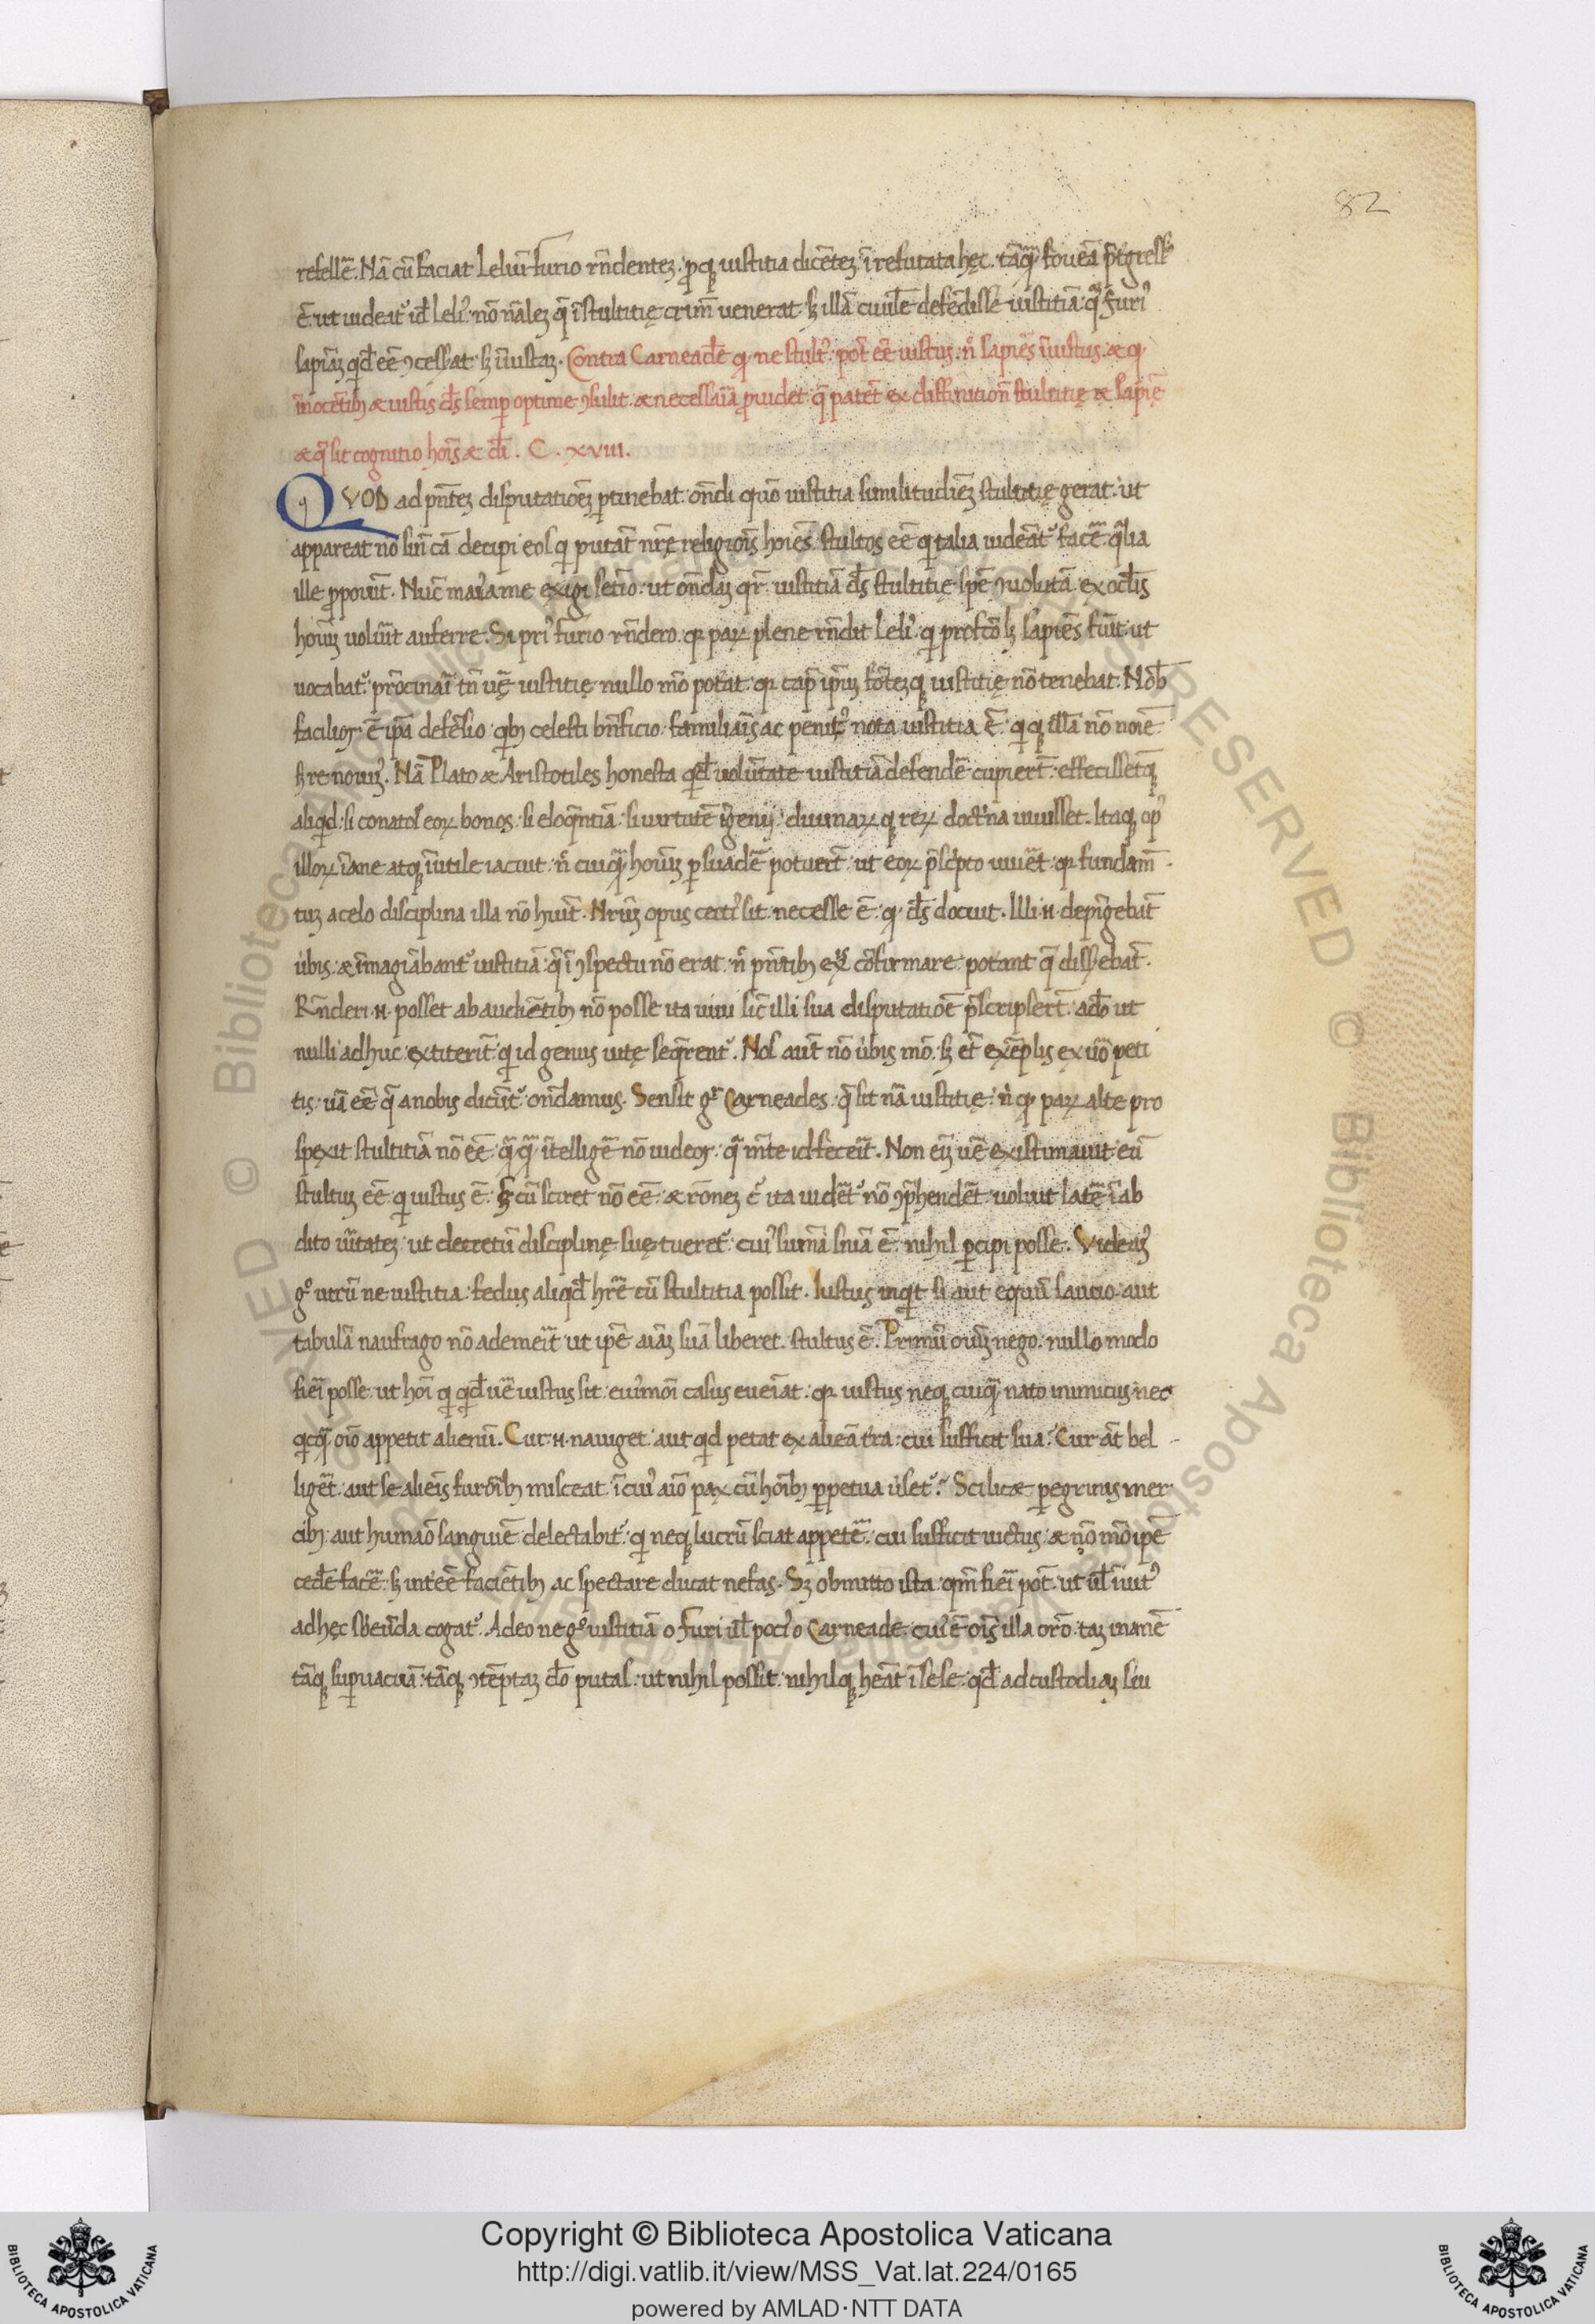 82
refellē. Nā cū faciat Leliū furio rn̄dentez. ꝓ q; iustitia dicētez. ī refutata hęc. tāq̄ fouēā p̄tgress᾽
ē. ut uideat᾽ id̄ Leli᾽. nō nālez q̄ ī stultitię crim̄ uenerat. sꝫ illā ciuilē defēdisse iustitiā. q̄ Furi᾽
sapiāz qd̄ eē ɔcess̄at. sꝫ īiustaz. Contra Carneadē qꝫ ne stult᾽. pot̄ eē iustus. n̄ sapiēs īiustus. æ qꝫ
īnocētibꝫ æ iustis d̄s semꝑ optime ɔsulit. æ necessaīa ꝓuidet. q̄ patēt ex diffinition̄ stultitię æ sapię
æ q̄ sit cognitio hoīs æ d̄i. C. xviii.
QVOD ad pn̄tez disputatiōez ꝑtinebat. on̄di quō iustitia similitudīez stultitię gerat. ut
appareat nō sin̄ cā decipi eos q putāt nr̄ę religiōīs hoīes. stultos eē q talia uideāt᾽ facē. q̄lia
ille ꝓposuit. Nūc maī a me exigi sētio. ut on̄daz qr̄ iustitiā d̄s stultitię spē ɔuolutā ex oclīs
hoīuz uoluīt auferre. Si pri᾽ furio rn̄dero. qꝛ paꝝ plene rn̄dit Leli᾽. q ꝓfc̄o lꝫ sapiēs fuīt. ut
uocabat᾽. prōcinaī tn̄ uę̄ iustitię nullo mō potat. qꝛ cap̄ ip̄iuz fōtezq; iustitię nō tenebat. Nob̄
facilior ē ip̄a defēsio. qbꝫ celesti bn̄ficio. familiaīs ac penit᾽ nota iustitia ē. q q; illā nō noīe
sꝫ re nouim᾽. Nā Plato æ Aristotiles honesta qd̄ uolūtate iustitiā defendē cupierūt. effecissētq;
aliqd. si conatos eoꝝ bonos. si eloq̄ntiā. si uirtutē īgenij. diuinaꝝ q; reꝝ doct᾽na iuuisset. Itaq; op᾽
illoꝝ īane atq; īutile iacuit. n̄ cuiq̄ hoīuz ꝑsuadē potuerūt. ut eoꝝ p̄sc᾽pto uiuēt. qꝛ fundam̄
tuz a celo disciplina illa nō huit̄. Nr̄uz opus certi᾽ sit necesse ē. qꝫ d̄s docuit. Illi .n. depīgebāt
ūbis. æ īmagīabant᾽ iustitiā. q̄ ī ɔspectu nō erat. n̄ pn̄tibꝫ ex̄ cōfirmare. potant q̄ diss̄ebāt.
Rn̄deri .n. posset ab audiētibꝫ nō posse ita uiui. sīc illi sua disputatiōē p̄scripserūt. adō ut
nulli adhuc extiterīt. q id genus uitę seq̄rent᾽. Nos aūt nō ūbis mō. sꝫ et̄ exēplis ex uō peti
tis. uā eē q̄ a nobis dicūt᾽. on̄damus. Sensit gͦ Carneades. q̄ sit nā iustitię. n̄ qꝫ paꝝ alte pro
spexit stultitiā nō eē. q̄q̄ ītelligē nō uideor. q̄ mēte id feceīt. Non eīz uē existimauit. eū
stultuz eē. q iustus ē. sꝫ cū sciret nō eē. æ rōnez c᾽ ita uidēt᾽ nō ɔp̄hendēt. uoluit latē ī ab
dito uītatez. ut decretū disciplinę suę tueret᾽. cui᾽ sūma sn̄ia ē. nihil ꝑcipi posse. Videam᾽
gͦ utrū ne iustitia. fedus aliqd̄ hr̄e cū stultitia possit. Iustus inqt. si aut equū saucio. aut
tabulā naufrago nō ademeīt ut ip̄e aīaz suā liberet. stultus ē. Primū oīuz nego. nullo modo
fieī posse. ut hoī q qd̄ uē iustus sit. eui᾽moī casus eueīat. qꝛ iustus neq; cuiq̄ nato inimicus nec
qcq̄ oīo appetit alienū. Cur .n. nauiget. aut qd petat ex alieā t᾽ra. cui sufficit sua. Cur āt bel
ligēt. aut se alieīs furōībꝫ misceat. ī cui᾽ aīo pax cū hoībꝫ ꝑpetua ūset᾽. Scilicæ ꝑegrinis mer
cibꝫ. aut humāo sanguīe delectabit᾽. q neq; lucrū sciat appetē. cui sufficit uictus. æ nō mō ip̄e
cedē facē. sꝫ inteē facīetibꝫ ac spectare ducat nefas. Sꝫ obmitto ista. qm̄ fieī pōt. ut ul̄ īuit᾽
ad hęc sbeūda cogat᾽. Adeo ne gͦ iustitiā o Furi ul̄ poti᾽ o Carneade. cui᾽ ē oīs illa or̄o. taz inanē
tāq; suꝑuacuā. tāq; ɔtēptaz d̄o putas. ut nihil possit. nihilq; heāt ī sese. qd̄ ad custodiaz sui
Copyright © Biblioteca Apostolica Vaticana
http://digi.vatlib.it/view/MSS_Vat.lat.224/0165
powered by AMLAD·NTT DATA